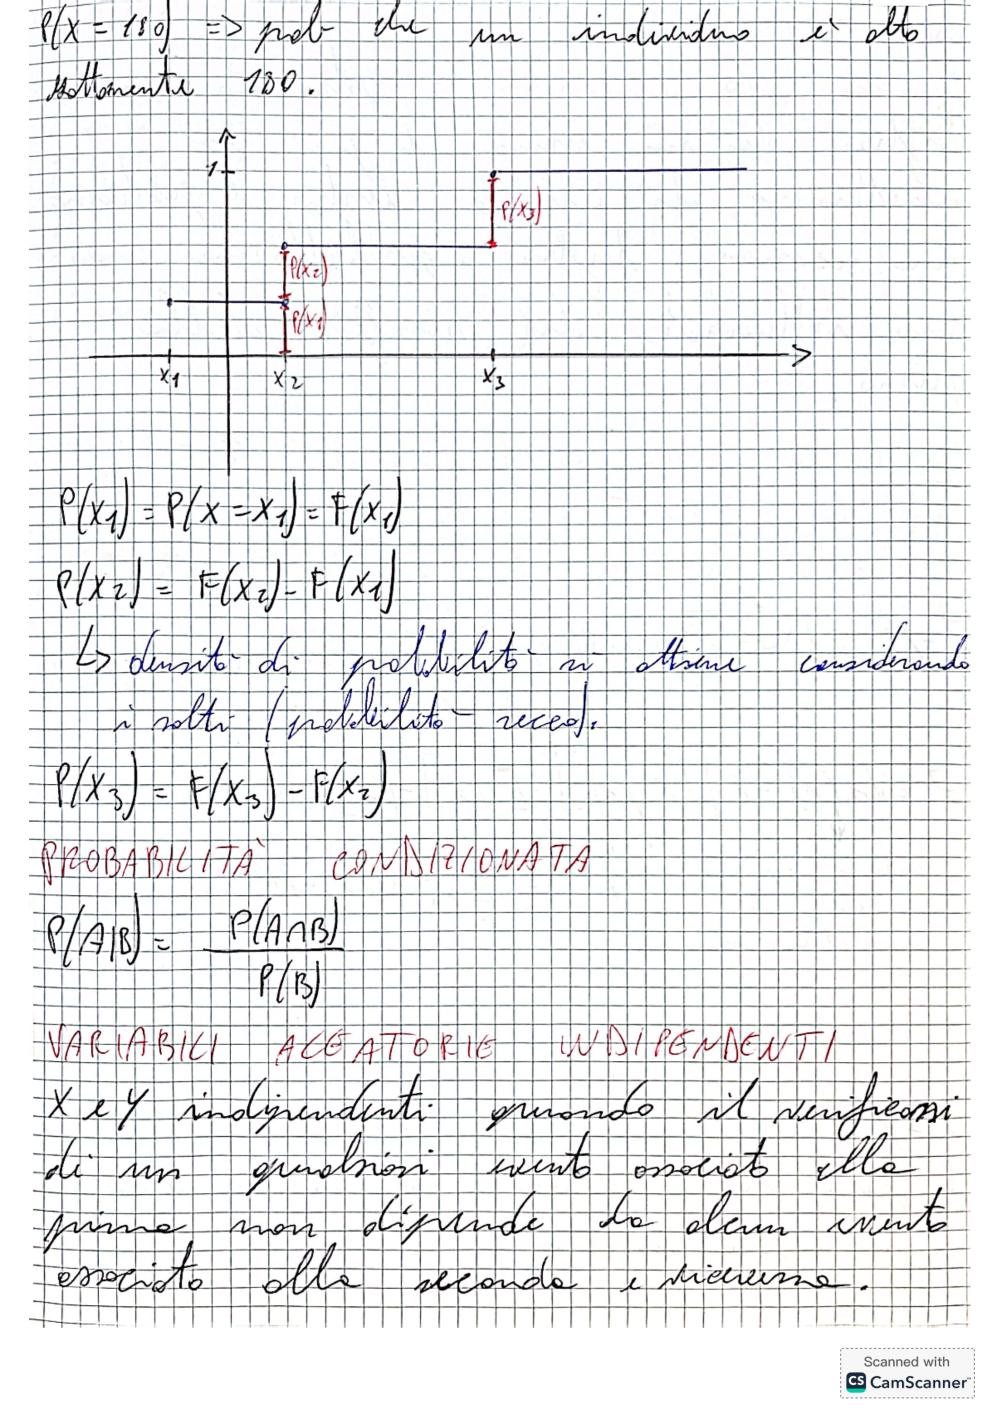 P(X = 180) => prob che un individuo è alto
esattamente 180.
1
P(x3)
P(x2)
P(x1)
x1 x2 x3
P(x1) = P(X = x1) = F(x1)
P(x2) = F(x2) - F(x1)
↳ densità di probabilità si ottiene considerando
i salti (probabilità secca).
P(x3) = F(x3) - F(x2)
PROBABILITÀ CONDIZIONATA
P(A|B) = P(A∩B)
P(B)
VARIABILI ALEATORIE INDIPENDENTI
X e Y indipendenti quando il verificarsi
di un qualsiasi evento associato alla
prima non dipende da alcun evento
associato alla seconda e viceversa.
Scanned with
CS CamScanner